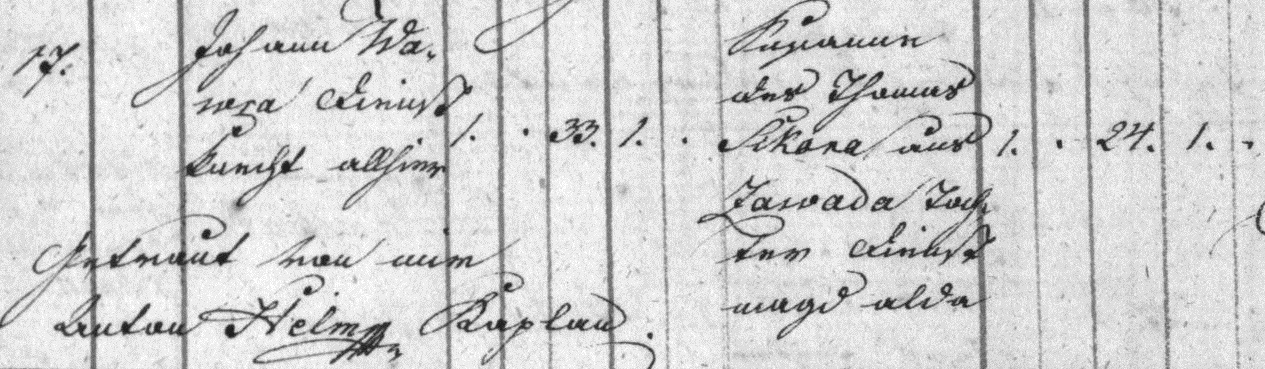 17.
Johann Wa-
wra Dienst
Knecht allhier
1. . 33. 1. .
Susanna
des Thomas
Sikora aus
Zawada Toch-
ter Dienst
magd alda
1. . 24. 1. .
Getraut von mir
Anton Helm Kaplan.